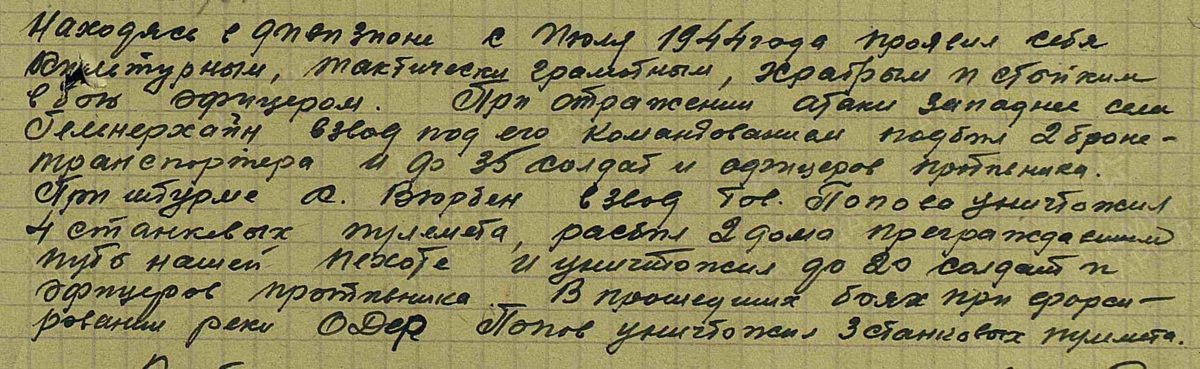 Находясь в дивизионе с июля 1944 года проявил себя
культурным, тактически грамотным, храбрым и стойким
в бою офицером. При отражении атаки западнее села
Гельнерхайн взвод под его командованием подбил 2 броне-
транспортера и до 35 солдат и офицеров противника.
При штурме с. Вюрбен взвод тов. Попова уничтожил
4 станковых пулемета, разбил 2 дома преграждавшими
путь нашей пехоте и уничтожил до 20 солдат и
офицеров противника. В прошедших боях при форси-
ровании реки ОДер Попов уничтожил 3 станковых пулемета.